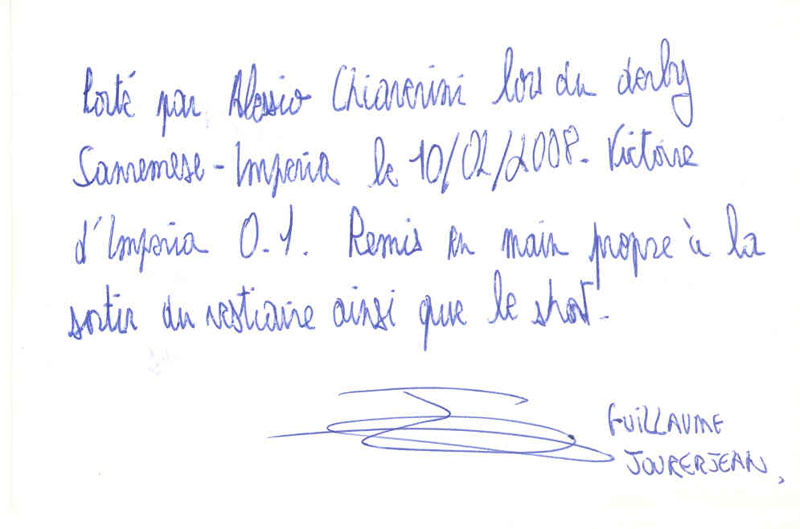 Porté par Alessio Chiaverini lors du derby
Sanremese - Imperia le 10/02/2008. Victoire
d'Imperia 0-1. Remis en main propre à la
sortir du vestiaire ainsi que le short.
GUILLAUME
JOURERJEAN,